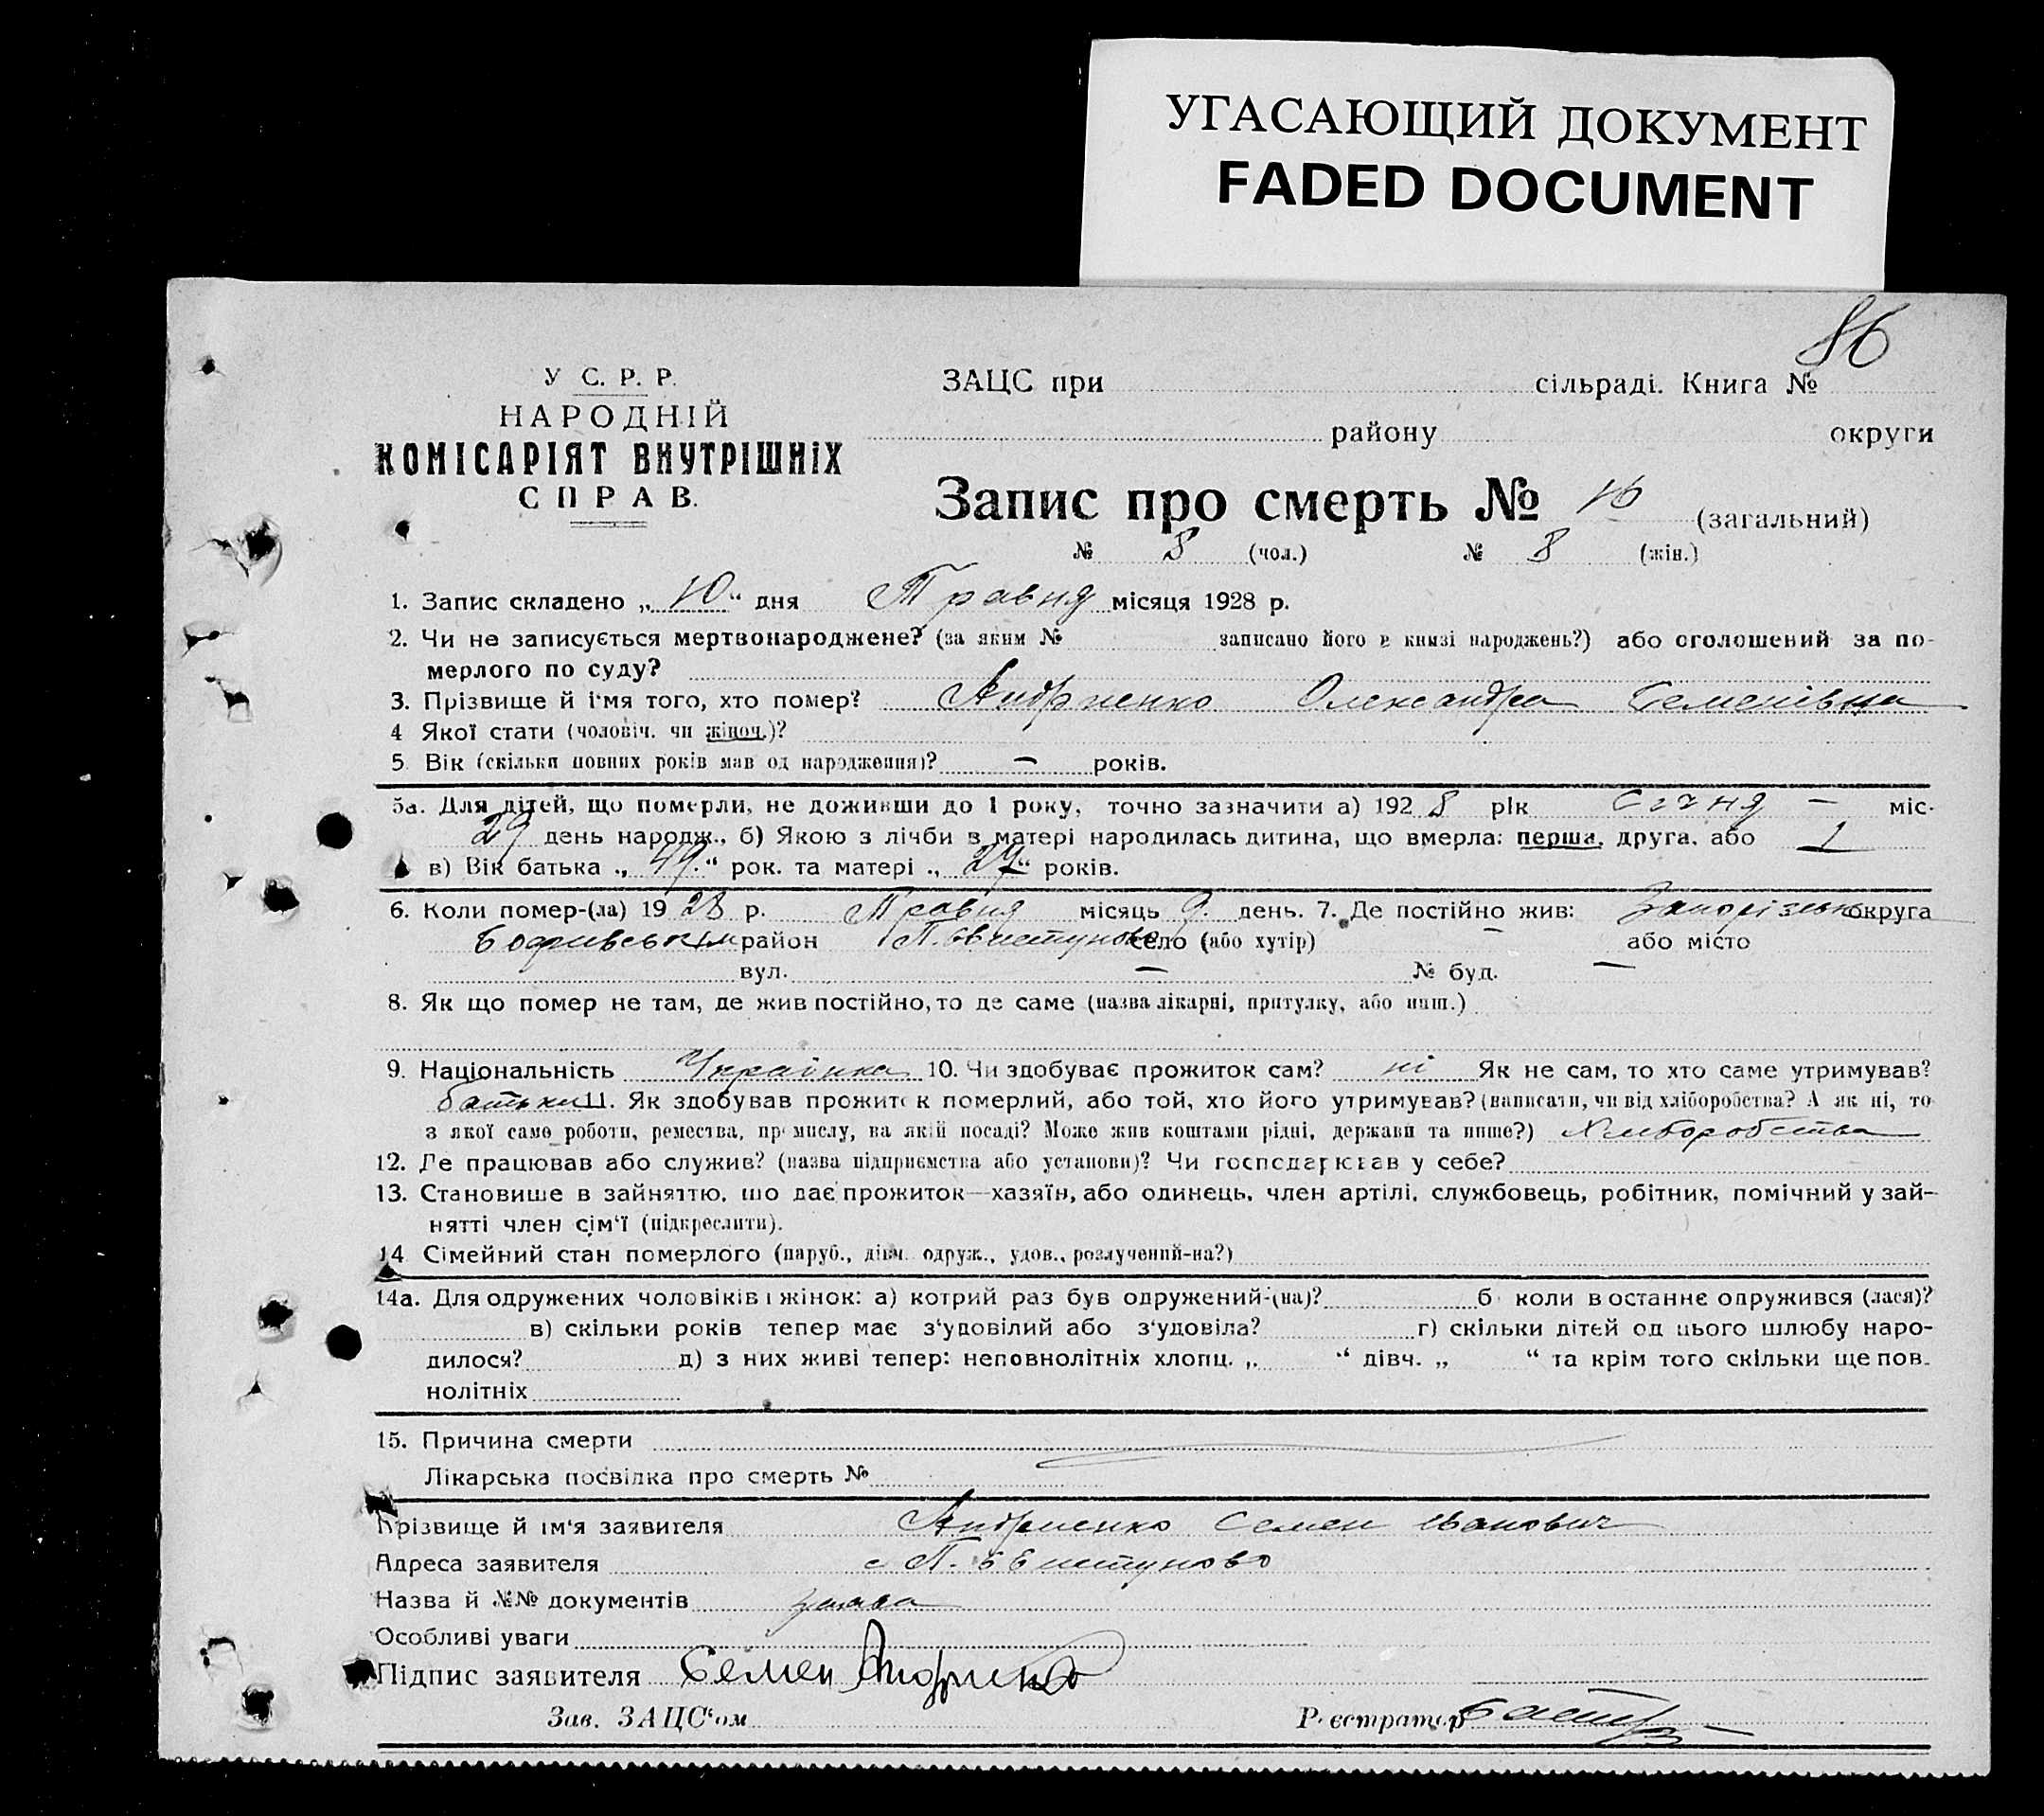 УГАСАЮЩИЙ ДОКУМЕНТ
FADED DOCUMENT
86
У С. Р. Р.
НАРОДНІЙ
КОМІСАРІЯТ ВНУТРІШНІХ
СПРАВ.
ЗАЦС при сільраді. Книга №
району округи
Запис про смерть № 16 (загальний)
№ 8 (чол.) № 8 (жін.)
1. Запис складено „10“ дня Травня місяця 1928 р.
2. Чи не записується мертвонароджене? (за яким № записано його в книзі народжень?) або оголошений за по-
мерлого по суду?
3. Прізвище й ім'я того, хто помер? Андриенко Олександра Семенівна
4 Якої стати (чоловіч. чи жіноч.)?
5. Вік (скільки повних років мав од народження)? — років.
5а. Для дітей, що померли, не доживши до 1 року, точно зазначити а) 1928 рік Січня — міс.
29 день народж., б) Якою з лічби в матері народилась дитина, що вмерла: перша, друга, або 1
в) Вік батька „49.“ рок. та матері „27“ років.
6. Коли помер-(ла) 1928 р. Травня місяць 9. день. 7. Де постійно жив: Запорізька округа
район П. Свистуново село (або хутір) — або місто
вул. — № буд. —
8. Як що помер не там, де жив постійно, то де саме (назва лікарні, притулку, або инш.)
9. Національність Українка 10. Чи здобуває прожиток сам? ні Як не сам, то хто саме утримував?
батьки 11. Як здобував прожиток померлий, або той, хто його утримував? (написати, чи від хліборобства? А як ні, то
з якої саме роботи, ремества, промислу, на якій посаді? Може жив коштами рідні, держави та инше?) Хліборобства
12. Де працював або служив? (назва підприємства або установи)? Чи господарював у себе?
13. Становише в зайняттю, що дає прожиток—хазяїн, або одинець, член артілі, службовець, робітник, помічний у зай-
нятті член сім'ї (підкреслити).
14. Сімейний стан померлого (паруб., дівч. одруж., удов., розлучений-на?)
14а. Для одружених чоловіків і жінок: а) котрий раз був одружений-(на)? б) коли востаннє одружився (лася)?
в) скільки років тепер має з'удовілий або з'удовіла? г) скільки дітей од цього шлюбу наро-
дилося? д) з них живі тепер: неповнолітніх хлопц. „ “ дівч. „ “ та крім того скільки ще пов-
нолітніх
15. Причина смерти
Лікарська посвідка про смерть №
Прізвище й ім'я заявителя Андриенко Семен Іванович
Адреса заявителя с П. Свистуново
Назва й №№ документів заява
Особливі уваги
Підпис заявителя Семен Андриенко
Зав. ЗАЦС'ом Реєстратор